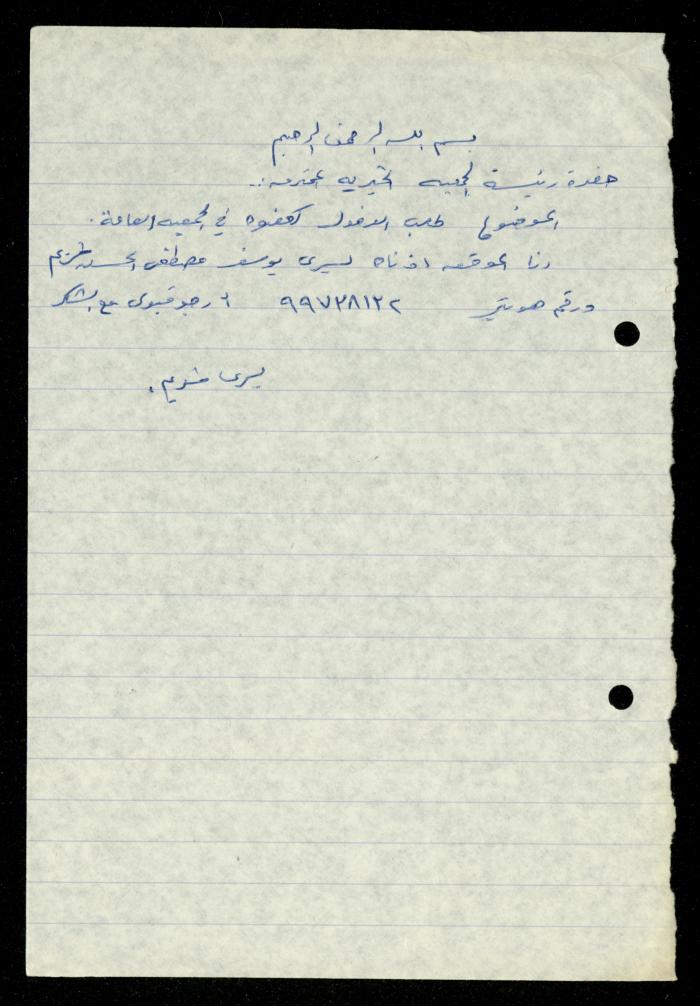 بسم الله الرحمن الرحيم
حضرة رئيسة الجمعيه الخيريه المحترمه..
الموضوع طلب الدخول كعضوه في الجمعيه العامة.
انا الموقعه ادناه يسرى يوسف مصطفى
ورقم هويتي ٩٩٧٣٨١٣٢ ارجو قبولي مع الشكر
يسرى